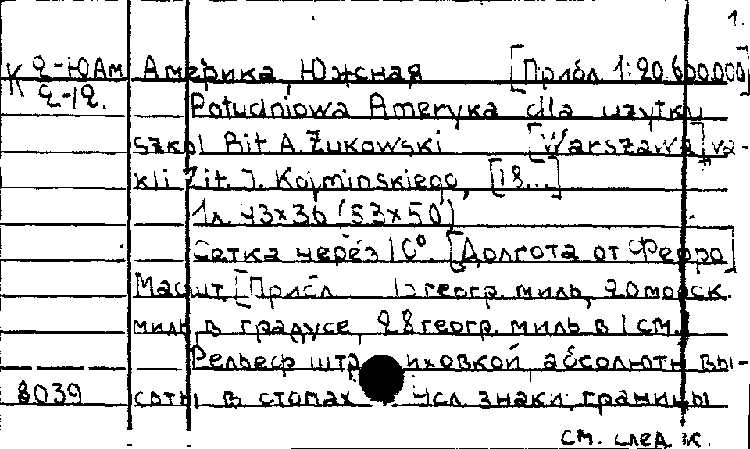 1.
К 2-ЮАм Америка, Южная [Прибл 1:20.600.000]
2-12. Południowa Ameryka dla użytku
szkol Rit A. Żukowski [Warszawa] va-
kli Zit. J. Kozminskiego, [18...]
1л. 43х36 (53х50)
Сетка через 10°. [Долгота от Ферро]
Масшт [Прибл 15 геогр. миль, 20 морск.
миль в градусе, 28 геогр. миль в 1 см.]
Рельеф штриховкой абсолютн вы-
8039 соты в стопах Усл знаки, границы
см. след. к.